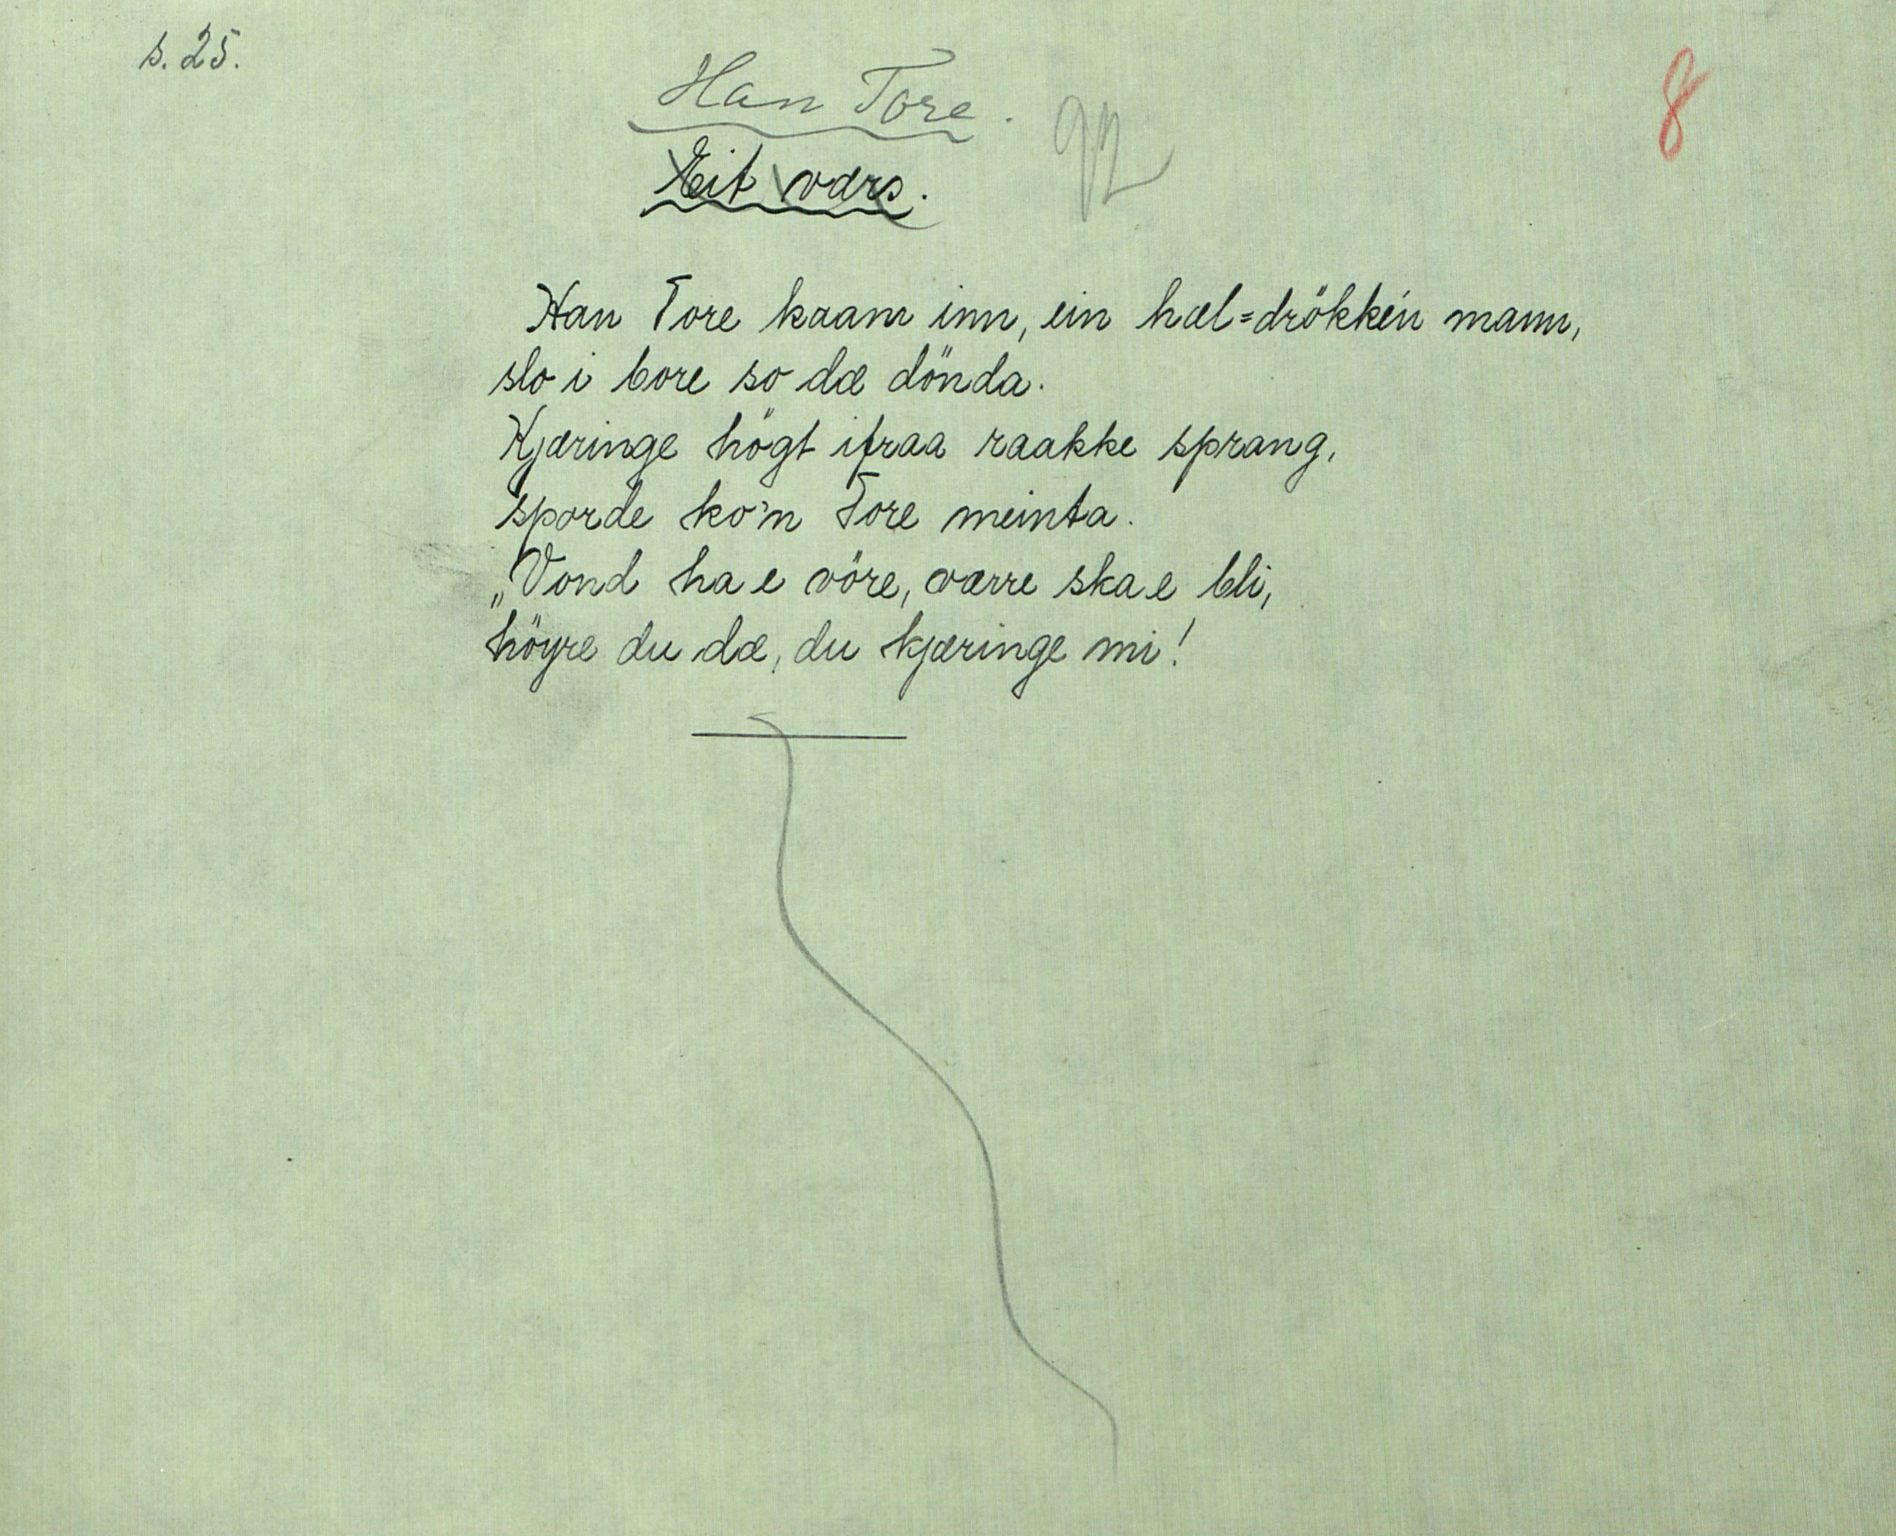 s. 25.
Han Tore.
92
8
Eit værs.
Han Tore kaam inn, ein hæl=drökkén mann,
slo i bore so dæ dönda.
Kjæringe högt ifraa raakke sprang,
sporde ko'n Tore meinta.
„Vond ha e vöre, værre ska e bli,
höyre du dæ, du kjæringe mi!